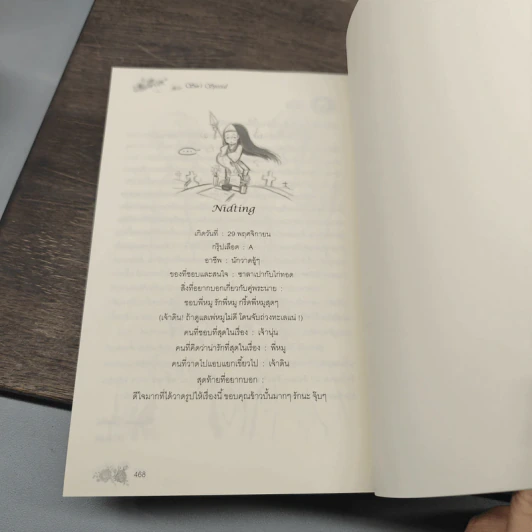 Nidting
เกิดวันที่ : 29 พฤศจิกายน
กรุ๊ปเลือด : A
อาชีพ : นักวาดอู้ๆ
ของที่ชอบและสนใจ : ซาลาเปากับไก่ทอด
สิ่งที่อยากบอกเกี่ยวกับคู่พระนาย :
ชอบพี่หมู รักพี่หมู กรี๊ดพี่หมูสุดๆ
(เจ้าดิน! ถ้าดูแลเฟ่หมูไม่ดี โดนจับถ่วงทะเลแน่ !)
คนที่ชอบที่สุดในเรื่อง : เจ้านุ่น
คนที่คิดว่าน่ารักที่สุดในเรื่อง : พี่หมู
คนที่วาดไปแอบแยกเขี้ยวไป : เจ้าดิน
สุดท้ายที่อยากบอก :
ดีใจมากที่ได้วาดรูปให้เรื่องนี้ ขอบคุณข้าวปั้นมากๆ รักนะ จุ๊บๆ
468